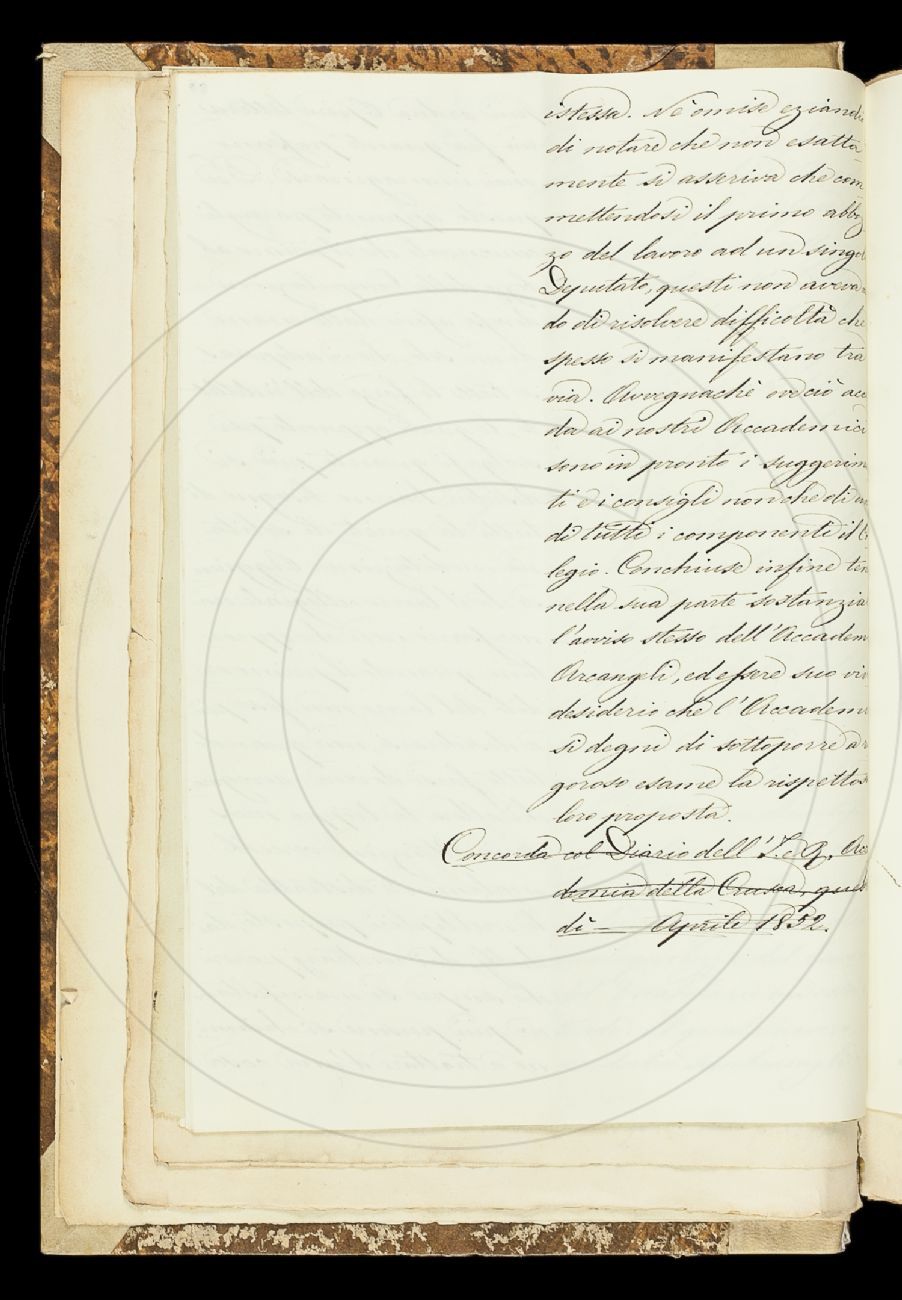 istessa. Nè omise eziandi
di notare che non esatta-
mente si asseriva che com
mettendosi il primo abbo
zo del lavoro ad un singol
Deputato, questi non aveva
do di risolvere difficoltà che
spesso si manifestano tra
via. Avvegnachè ove ciò acc
da ai nostri Accademici
sono in pronto i suggerim
ti e i consigli non che di
di tutti i componenti il
legio. Conchiuse infine ten
nella sua parte sostanzia
l'avviso stesso dell'Accadem
Arcangeli, ed essere suo vi
desiderio che l'Accadem
si degni di sottoporre a
goroso esame la rispettos
loro proposta.
Concorda col Diario dell'I. e R. Acc
demia della Crusca, ques
dì — Aprile 1852.